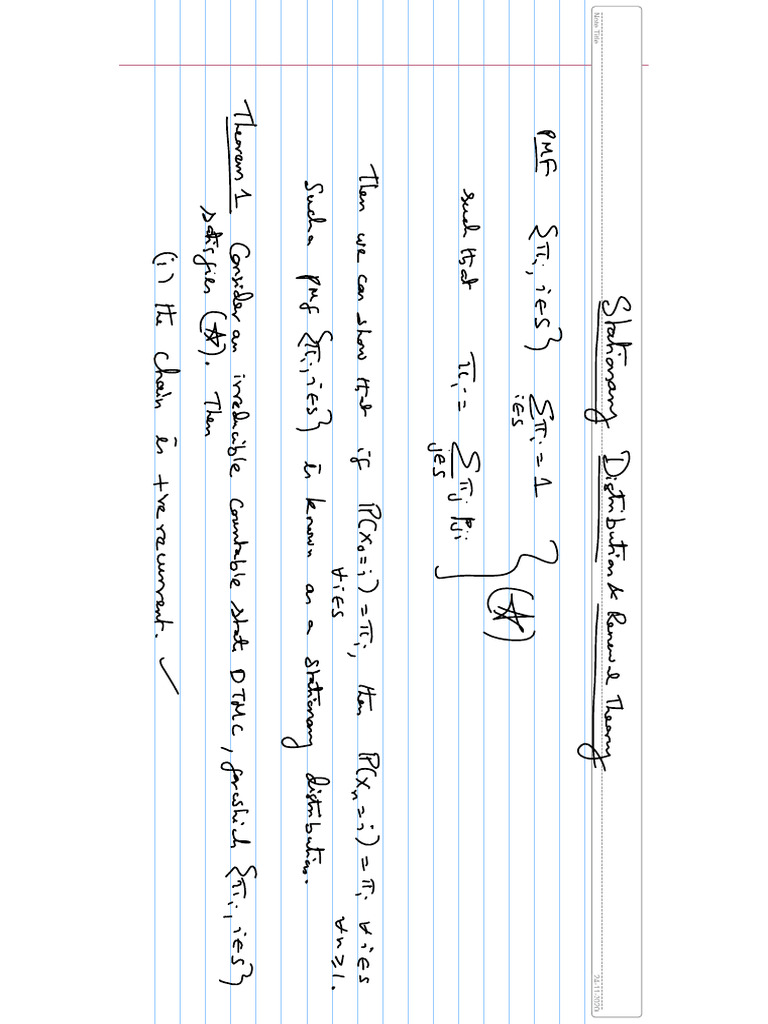 Note Title
24-11-2020
Stationary Distribution & Renewal Theory
PMF {πi, i∈S} ∑i∈S πi = 1
such that πi = ∑j∈S πj pji } (☆)
Then we can show that if P(X0=i) = πi, ∀i∈S then P(Xn=i) = πi ∀i∈S ∀n≥1.
Such a pmf {πi, i∈S} is known as a stationary distribution.
Theorem 1 Consider an irreducible countable state DTMC, for which {πi, i∈S}
satisfies (☆). Then
(i) the chain is +ve recurrent. ✓